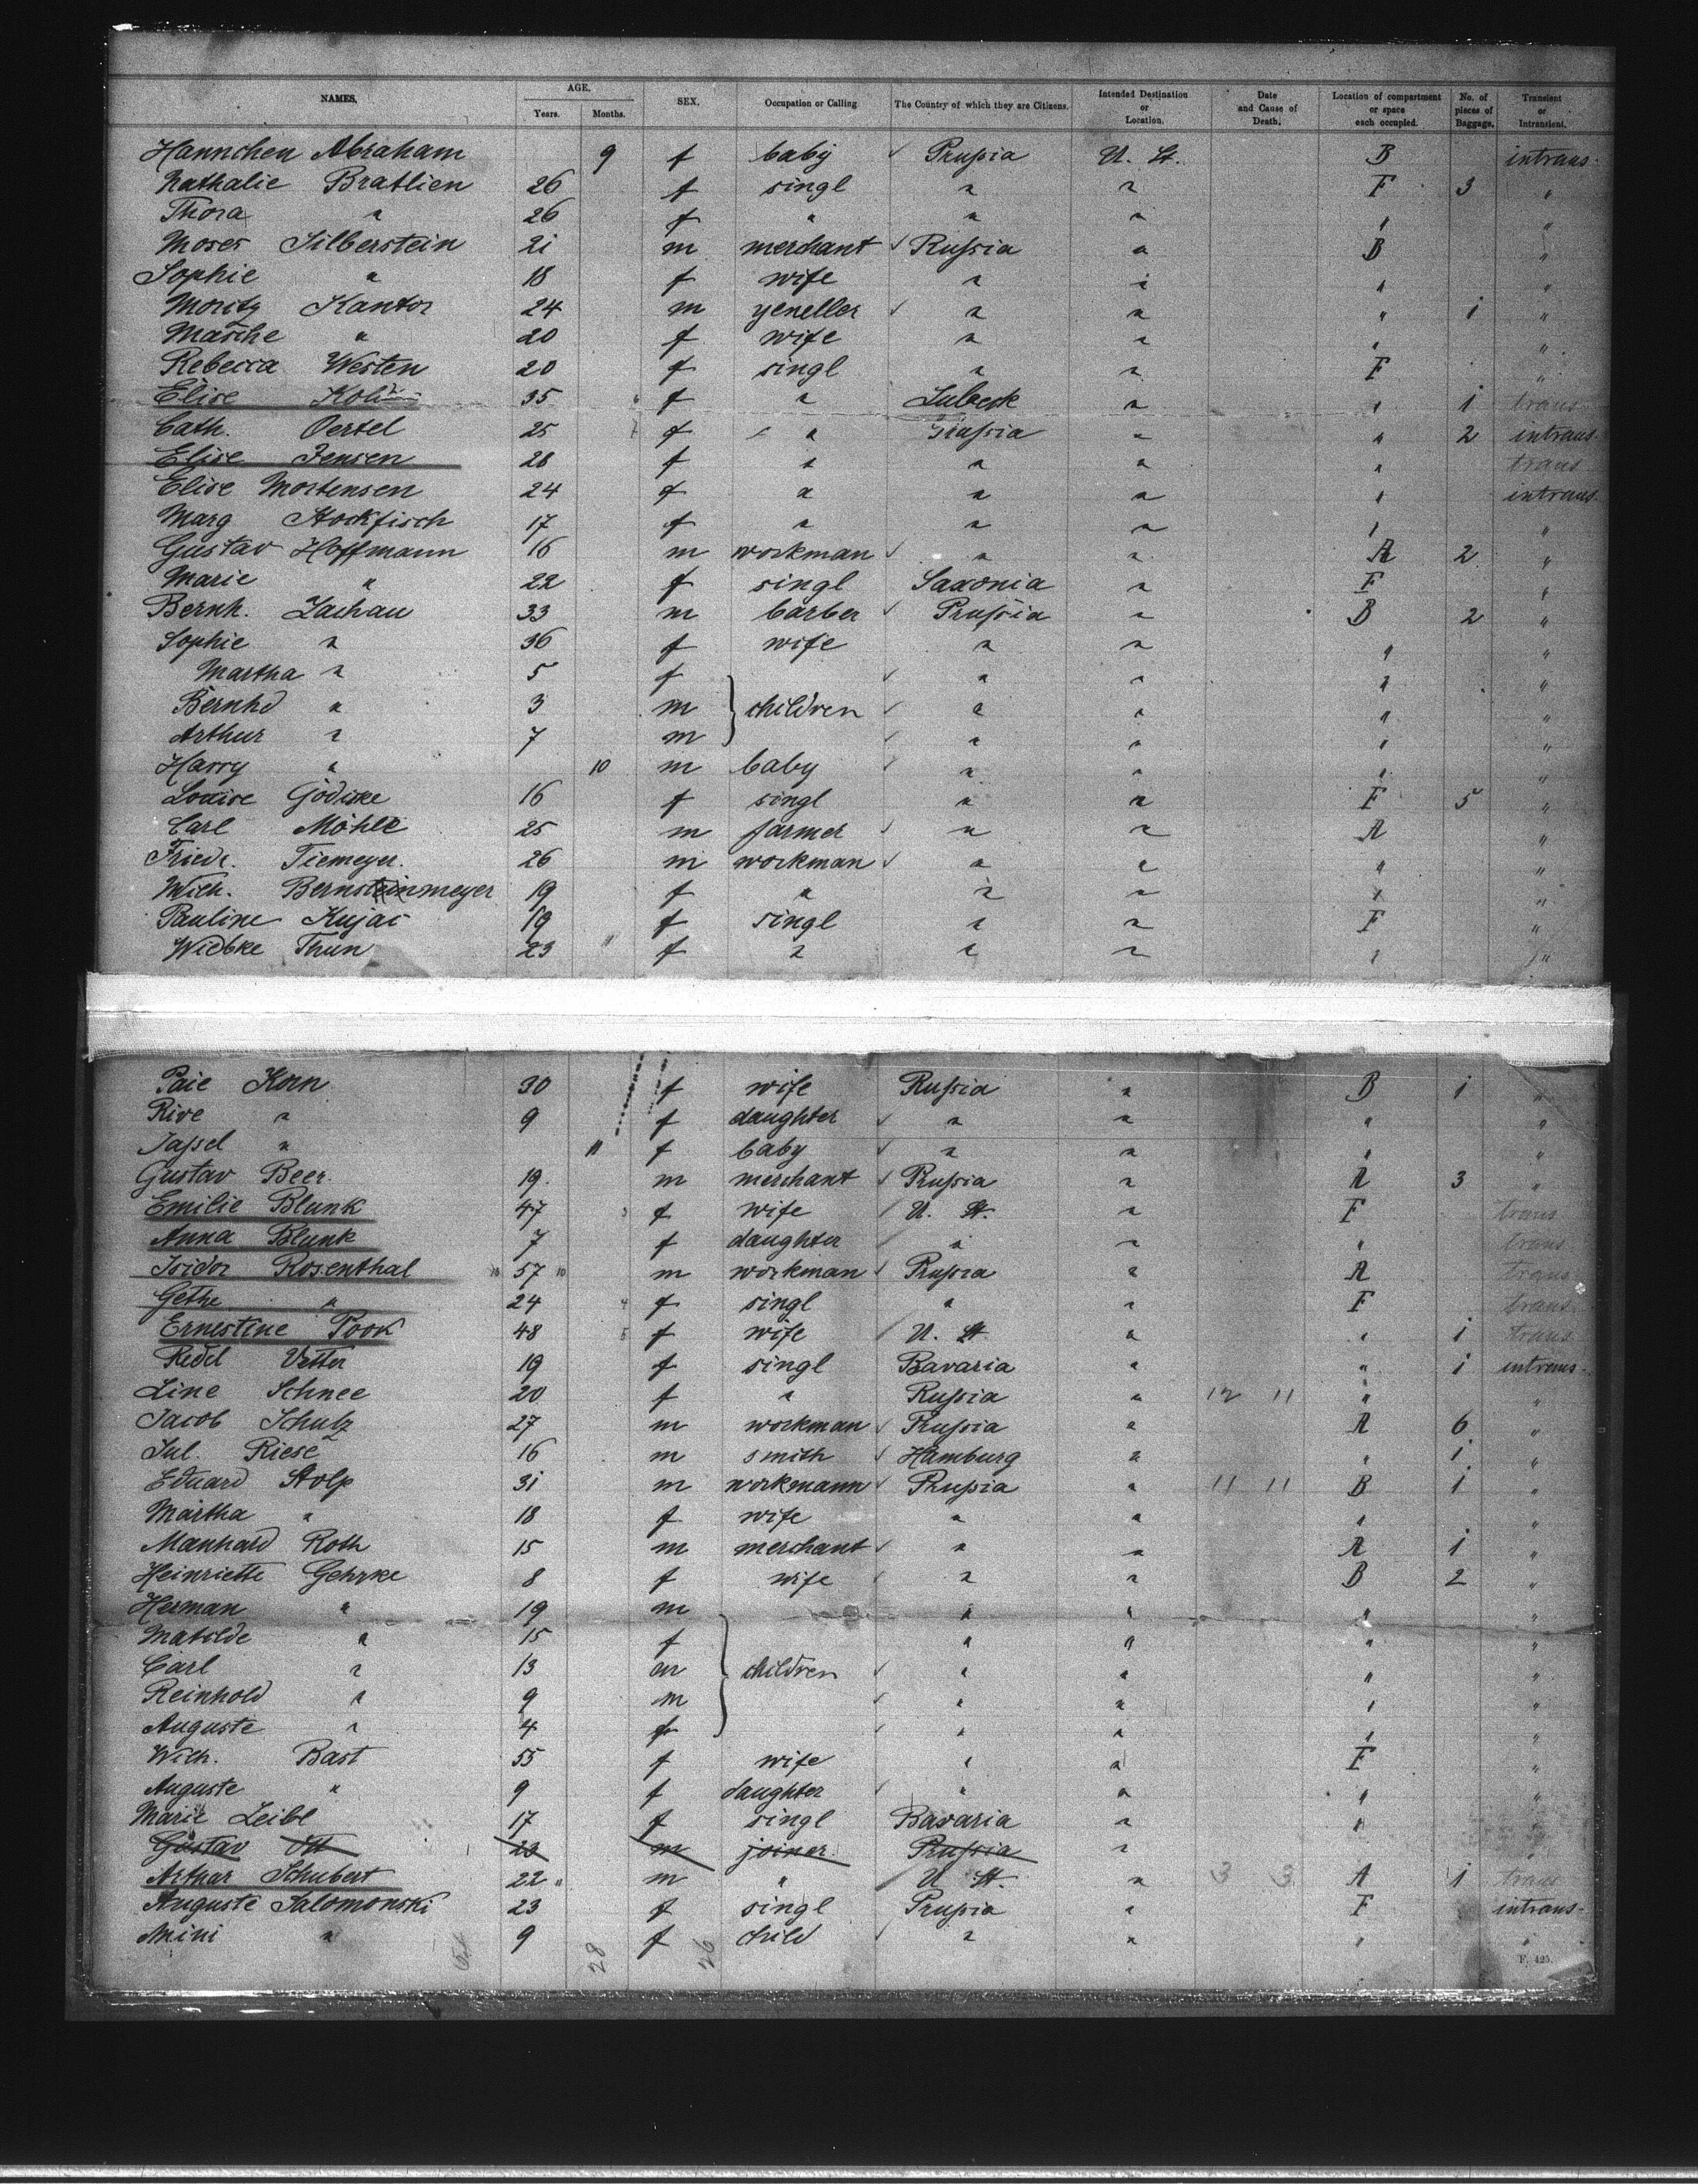 NAMES. AGE. Years. Months. SEX. Occupation or Calling The Country of which they are Citizens. Intended Destination or Location. Date and Cause of Death. Location of compartment or space each occupied. No. of pieces of Baggage. Transient or Intransient.
Hannchen Abraham 9 f baby Prussia U. St. B intrans.
Nathalie Bratlien 26 f singl " " F 3 "
Thora " 26 f " " " " "
Moses Silberstein 21 m merchant Russia " B "
Sophie " 18 f wife " " " "
Moritz Kantor 24 m yeneller " " " 1 "
Masche " 20 f wife " " " "
Rebecca Westen 20 f singl " " F "
Elise 35 f " Lubeck " " 1 trans
Cath. Oertel 25 f " Prussia " " 2 intrans.
Elise Jensen 28 f " " " " trans
Elise Mortensen 24 f " " " " intrans.
Marg Stockfisch 17 f " " " " "
Gustav Hoffmann 16 m workman " " A 2 "
Marie " 22 f singl Saxonia " F "
Bernh. Zachau 33 m barber Prussia " B 2 "
Sophie " 36 f wife " " " "
Martha " 5 f " " " "
Bernhd " 3 m children " " " "
Arthur " 7 m " " " "
Harry " 10 m baby " " " "
Louise Gödiske 16 f singl " " F 5 "
Carl Möhle 25 m farmer " " A "
Friedr. Tiemeyer. 26 m workman " " " "
Wilh. Bernsteinmeyer 19 f " " " " "
Pauline Kujai 19 f singl " " F "
Wiebke Thun 23 f " " " " "
Paie Korn 30 f wife Russia " B 1 "
Rive " 9 f daughter " " " "
Jassel " 11 f baby " " " "
Gustav Beer. 19. m merchant Prussia " A 3 "
Emilie Blunk 47 f wife U. St. " F trans
Anna Blunk 7 f daughter " " " trans
Isidor Rosenthal 57 m workman Prussia " A trans
Gethe " 24 f singl " " F trans
Ernestine Pook 48 f wife U. St. " " 1 trans
Redel Vetter 19 f singl Bavaria " " 1 intrans.
Line Schnee 20 f " Russia " 12 11 " "
Jacob Schulz 27 m workman Prussia " A 6 "
Jul. Riese 16 m smith Hamburg " " 1 "
Eduard Stolp 31 m workmann Prussia " 11 11 B 1 "
Martha " 18 f wife " " " "
Manhard Roth 15 m merchant " " A 1 "
Heinriette Gehrke 8 f wife " " B 2 "
Herman " 19 m " " " "
Matilde " 15 f " " " "
Carl " 13 m children " " " "
Reinhold " 9 m " " " "
Auguste " 4 f " " " "
Wilh. Bast 55 f wife " " F "
Auguste " 9 f daughter " " " "
Marie Leibl 17 f singl Bavaria " "
Gustav Ott 23 m joiner Prussia "
Arthur Schubert 22 m " U St. " 3 3 A 1 trans
Auguste Salomonski 23 f singl Prussia " F intrans.
Mini " 9 f child " " " "
28 26
F. 425.